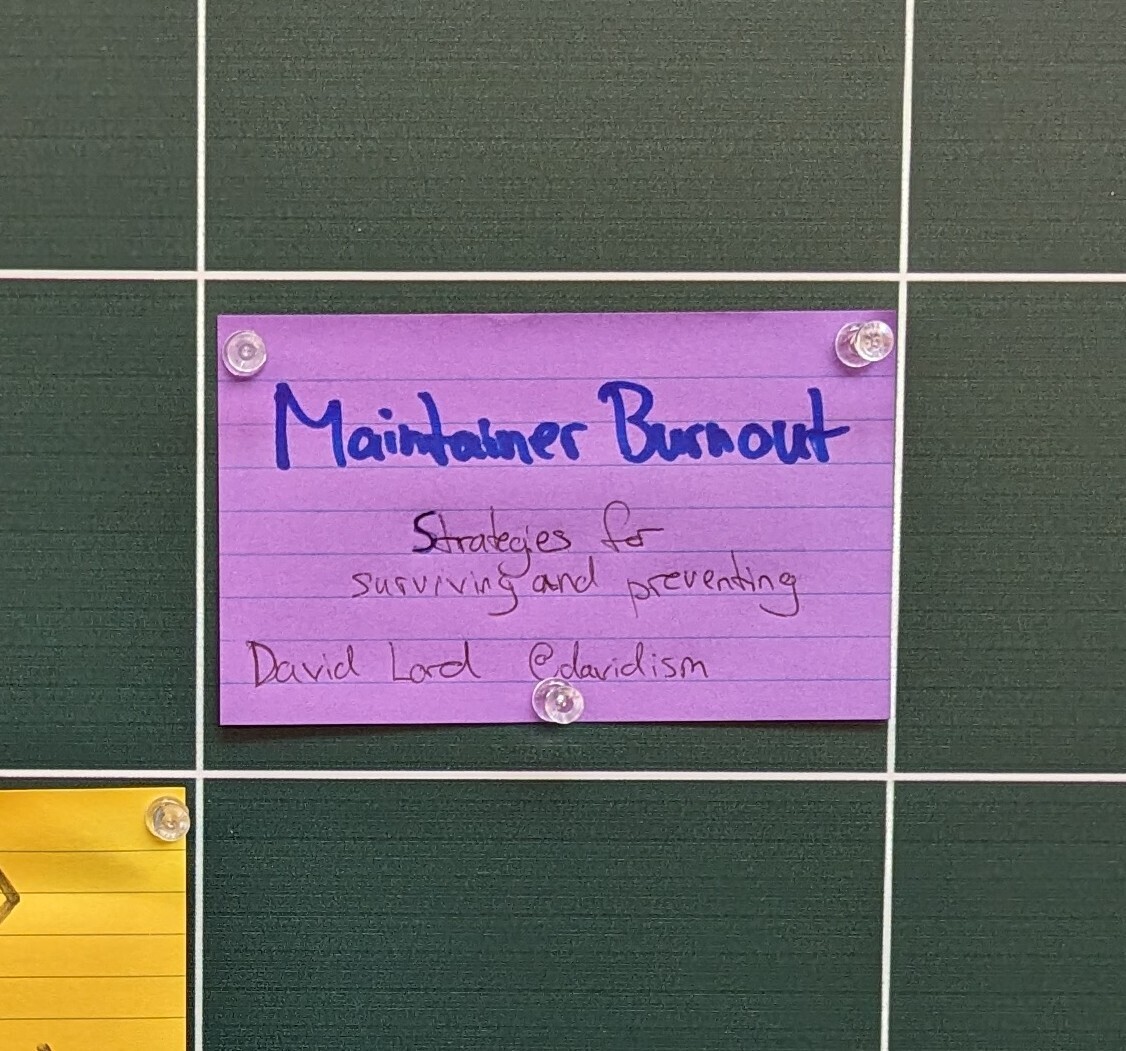 Maintainer Burnout
Strategies for
surviving and preventing
David Lord @davidism